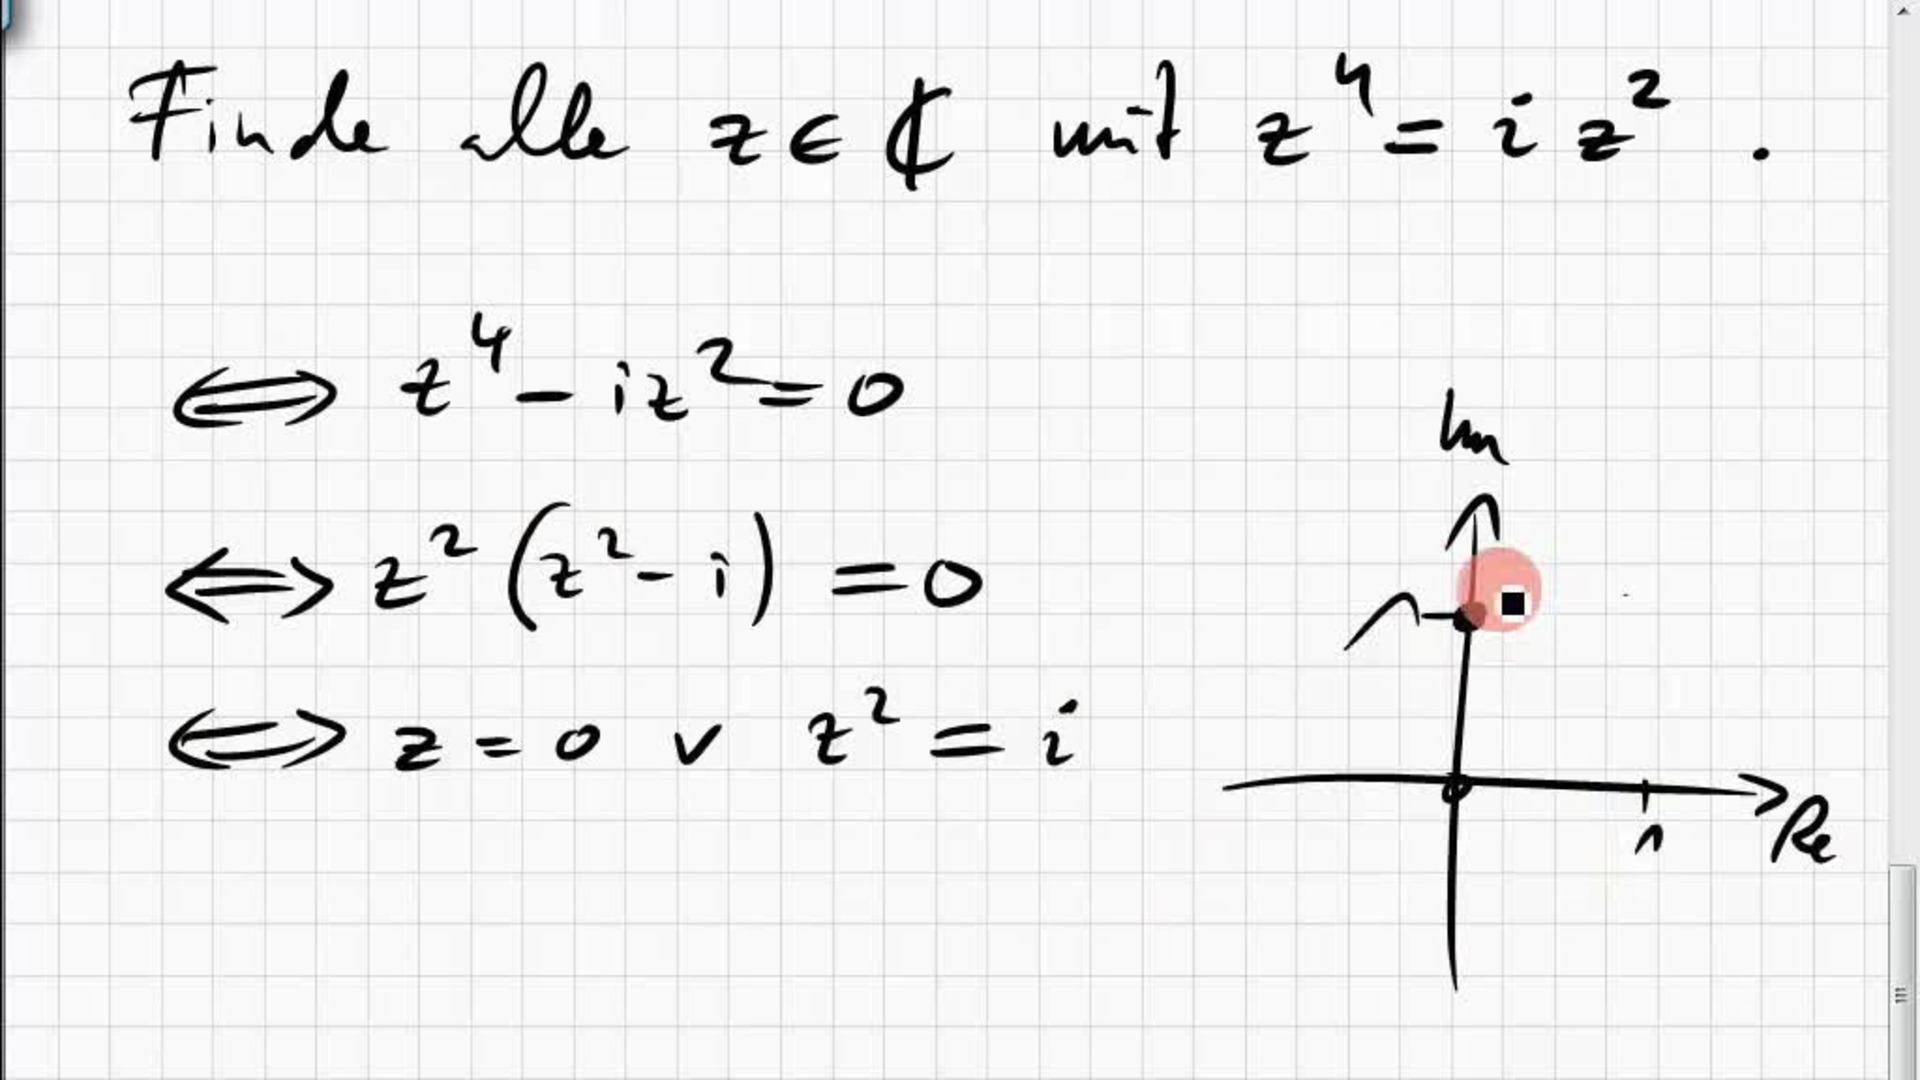 Finde alle z ∈ ℂ mit z⁴ = i z² .
⟺ z⁴ - i z² = 0
⟺ z² (z² - i) = 0
⟺ z = 0 ∨ z² = i
Im
1
1
Re